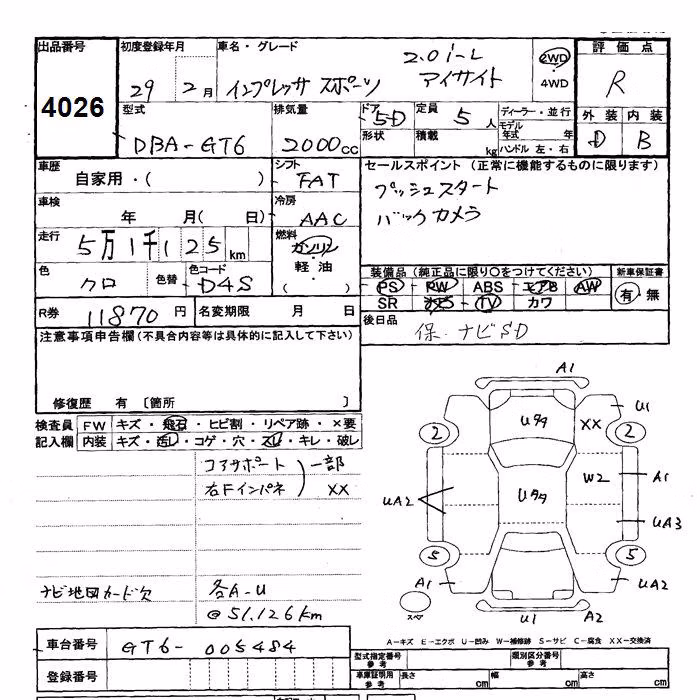 出品番号 初度登録年月 車名・グレード 2.0i-L 2WD 評価点
4026 29 2月 インプレッサ スポーツ アイサイト ・4WD R
型式 排気量 ドア 5D 定員 5人 ディーラー・並行 外装 内装
DBA-GT6 2000cc 形状 積載 kg モデル年式 年 D B
ハンドル 左・右
車歴 シフト セールスポイント (正常に機能するものに限ります)
自家用・( ) FAT プッシュスタート
車検 冷房 バックカメラ
年 月( 日) AAC
走行 燃料
5万1千125km ガソリン
軽油
( )
色 色替 色コード 装備品 (純正品に限り○をつけてください) 新車保証書
クロ D4S PS PW ABS エアB AW 有・無
SR カワ TV
R券 11870円 名変期限 月 日 後日品
保・ナビSD
注意事項申告欄(不具合内容等は具体的に記入して下さい)
修復歴 有 〔箇所 〕
検査員 FW キズ・飛石・ヒビ割・リペア跡・×要
記入欄 内装 キズ・汚し・コゲ・穴・スレ・キレ・破レ
コアサポート 一部
右Fインパネ XX
ナビ地図カード欠 各A-U
@51,126km
A1
U1
2 Uタタ XX 2
W2 A1
UA2 Uタタ
UA3
5 5
A1 UA2
スペア U1 A2
A-キズ E-エクボ U-凹み W-補修跡 S-サビ C-腐食 XX-交換済
車台番号 GT6-005484
型式指定番号 参考 類別区分番号 参考
登録番号 車庫証明用 参考 長さ cm 幅 cm 高さ cm